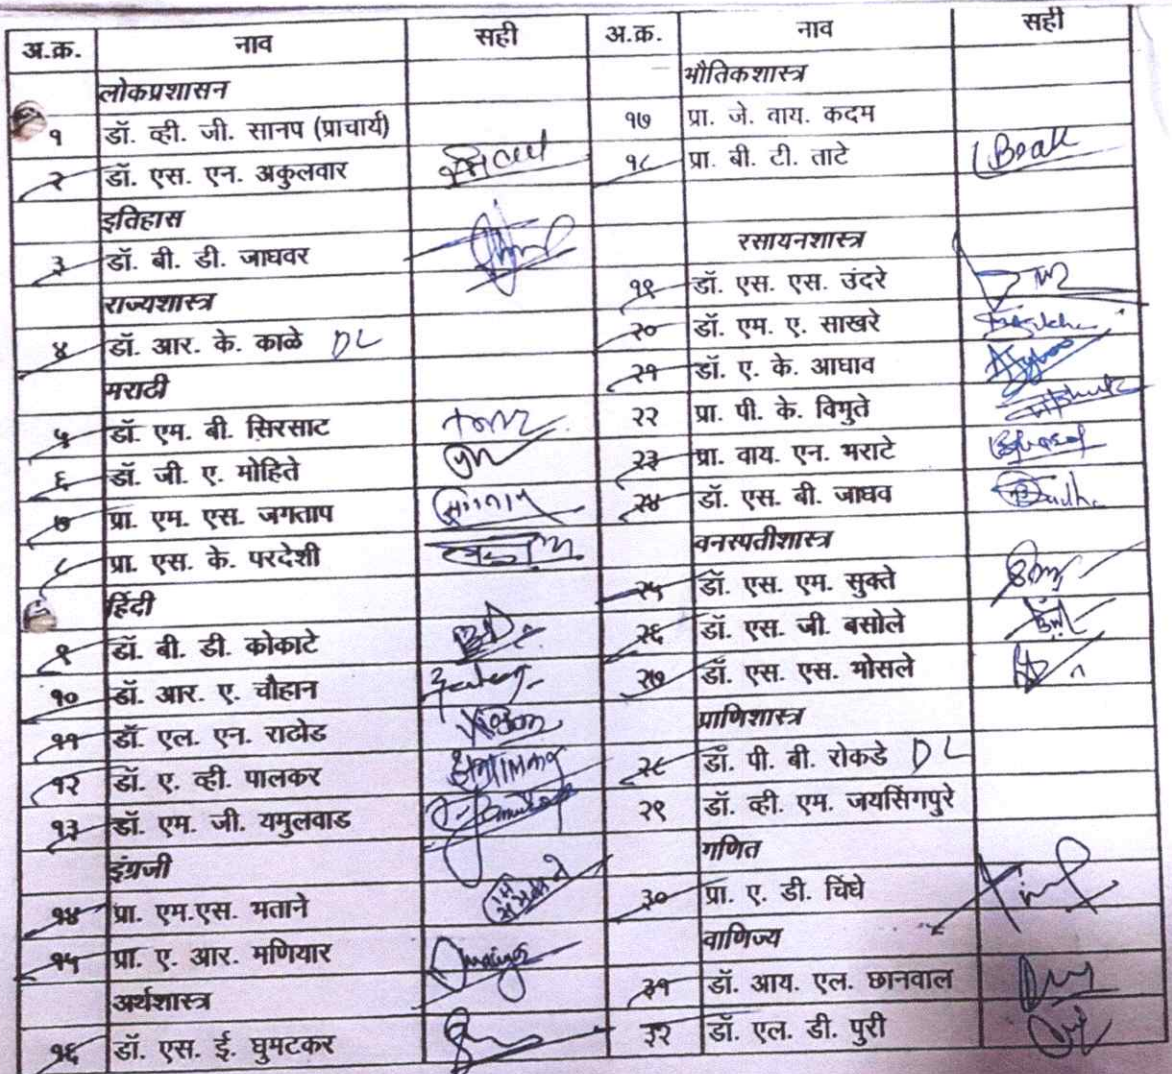 अ.क्र. नाव सही
लोकप्रशासन
१ डॉ. व्ही. जी. सानप (प्राचार्य)
२ डॉ. एस. एन. अकुलवार
इतिहास
३ डॉ. बी. डी. जाधवर
राज्यशास्त्र
४ डॉ. आर. के. काळे DL
मराठी
५ डॉ. एम. बी. सिरसाट
६ डॉ. जी. ए. मोहिते
७ प्रा. एम. एस. जगताप
८ प्रा. एस. के. परदेशी
हिंदी
९ डॉ. बी. डी. कोकाटे
१० डॉ. आर. ए. चौहान
११ डॉ. एल. एन. राठोड
१२ डॉ. ए. व्ही. पालकर
१३ डॉ. एम. जी. यमुलवाड
इंग्रजी
१४ प्रा. एम.एस. मताने
१५ प्रा. ए. आर. मणियार
अर्थशास्त्र
१६ डॉ. एस. ई. घुमटकर
अ.क्र. नाव सही
भौतिकशास्त्र
१७ प्रा. जे. वाय. कदम
१८ प्रा. बी. टी. ताटे
रसायनशास्त्र
१९ डॉ. एस. एस. उंदरे
२० डॉ. एम. ए. साखरे
२१ डॉ. ए. के. आघाव
२२ प्रा. पी. के. विभुते
२३ प्रा. वाय. एन. भराटे
२४ डॉ. एस. बी. जाधव
वनस्पतीशास्त्र
२५ डॉ. एस. एम. सुक्ते
२६ डॉ. एस. जी. बसोले
२७ डॉ. एस. एस. भोसले
प्राणिशास्त्र
२८ डॉ. पी. बी. रोकडे DL
२९ डॉ. व्ही एम. जयसिंगपुरे
गणित
३० प्रा. ए. डी. चिंधे
वाणिज्य
३१ डॉ. आय. एल. छानवाल
३२ डॉ. एल. डी. पुरी